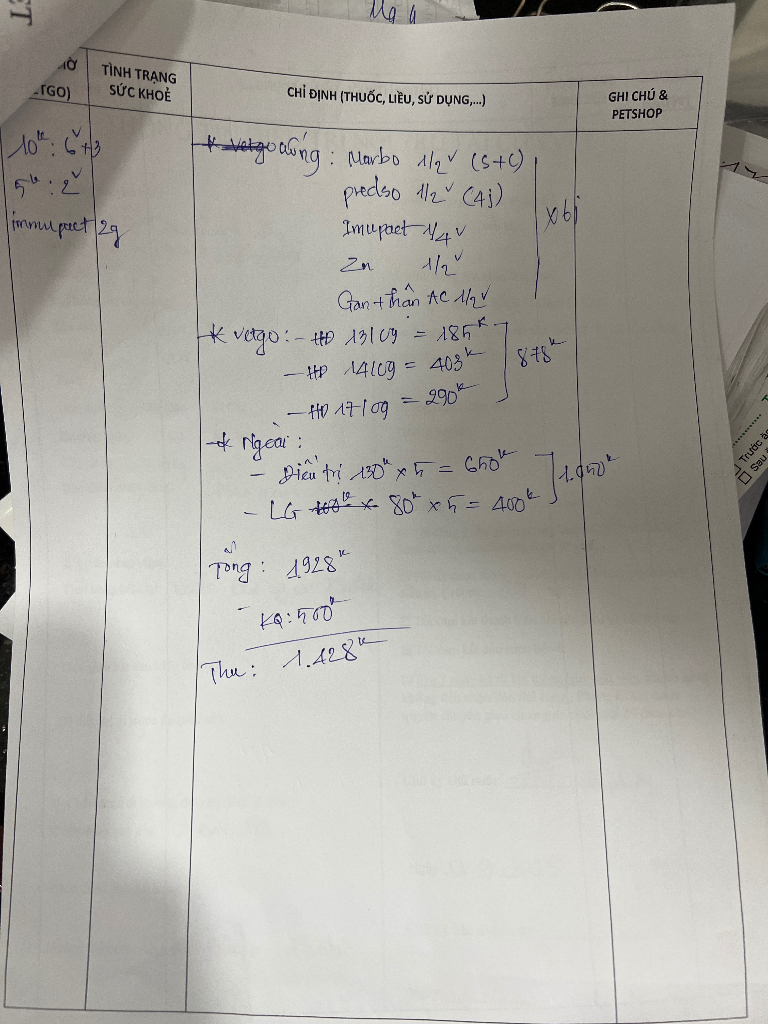 Mg 4
ET
IỜ
TGO)
TÌNH TRẠNG
SỨC KHOẺ
CHỈ ĐỊNH (THUỐC, LIỀU, SỬ DỤNG,...)
GHI CHÚ &
PETSHOP
10k : 6v + 3
5k : 2v
immupact 2g
* vetgo uống : Marbo 1/2v (S+C)
predso 1/2v (4j)
Imupact 1/4v
Zn 1/2v
Gan + thận AC 1/2v
x6j
* vetgo : - HĐ 13/09 = 185k
- HĐ 14/09 = 403k
- HĐ 17/09 = 290k
878k
* Ngoài :
- Điều trị 130k x 5 = 650k
- LG 100k x 80k x 5 = 400k
1.050k
Tổng : 1928k
- KQ : 500k
Thu : 1.428k
Trước ăn
Sau ă